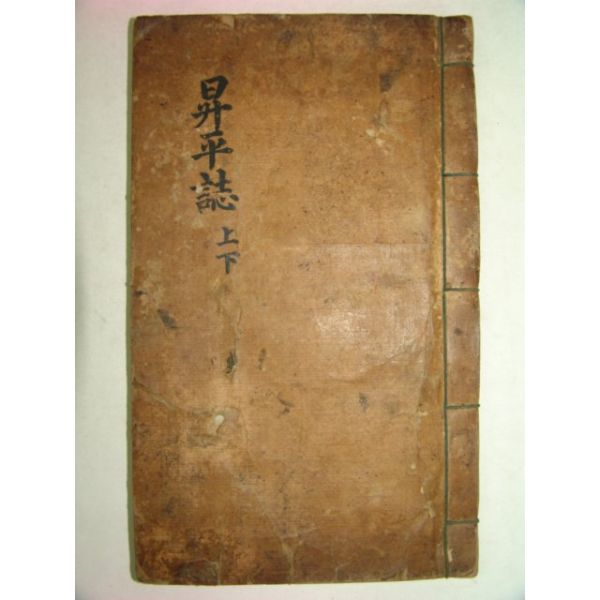 昇平誌
上下